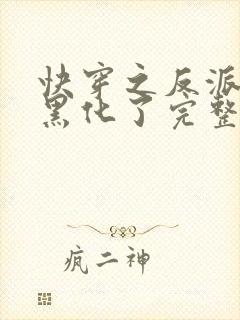 快穿之反派
黑化了完整
疯二神